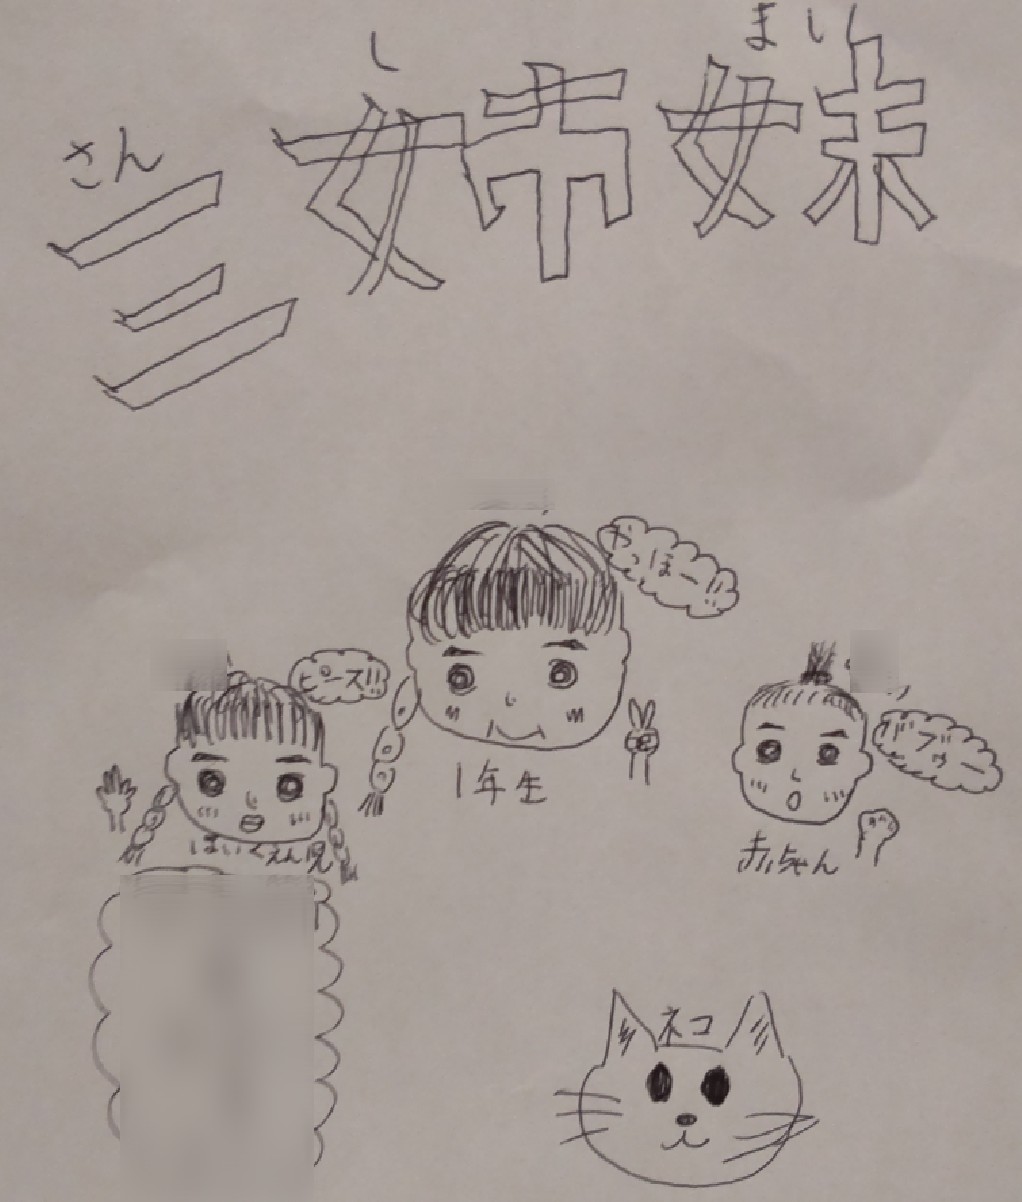 さん し まい
三姉妹
やっほー!!
ピース!!
1年生
バブゥー
ほいくえん児
赤ちゃん
ネコ